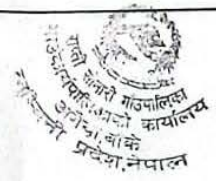 राप्ती सोनारी गाउँपालिका
गाउँकार्यपालिकाको कार्यालय
अगैया, बाँके
प्रदेश, नेपाल